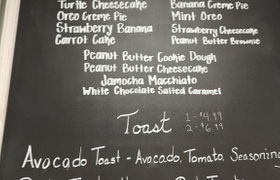 Turtle Cheesecake Banana Creme Pie
Oreo Creme Pie Mint Oreo
Strawberry Banana Strawberry Cheesecake
Carrot Cake Peanut Butter Brownie
Peanut Butter Cookie Dough
Peanut Butter Cheesecake
Jamocha Macchiato
White Chocolate Salted Caramel
Toast 1-$4.99
2-$6.99
Avocado Toast - Avocado, Tomato, Seasoning